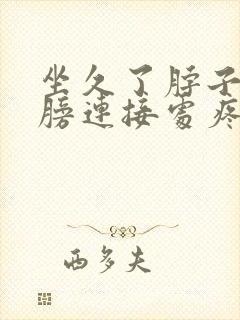 坐久了脖子
膀連接處疼
西多夫